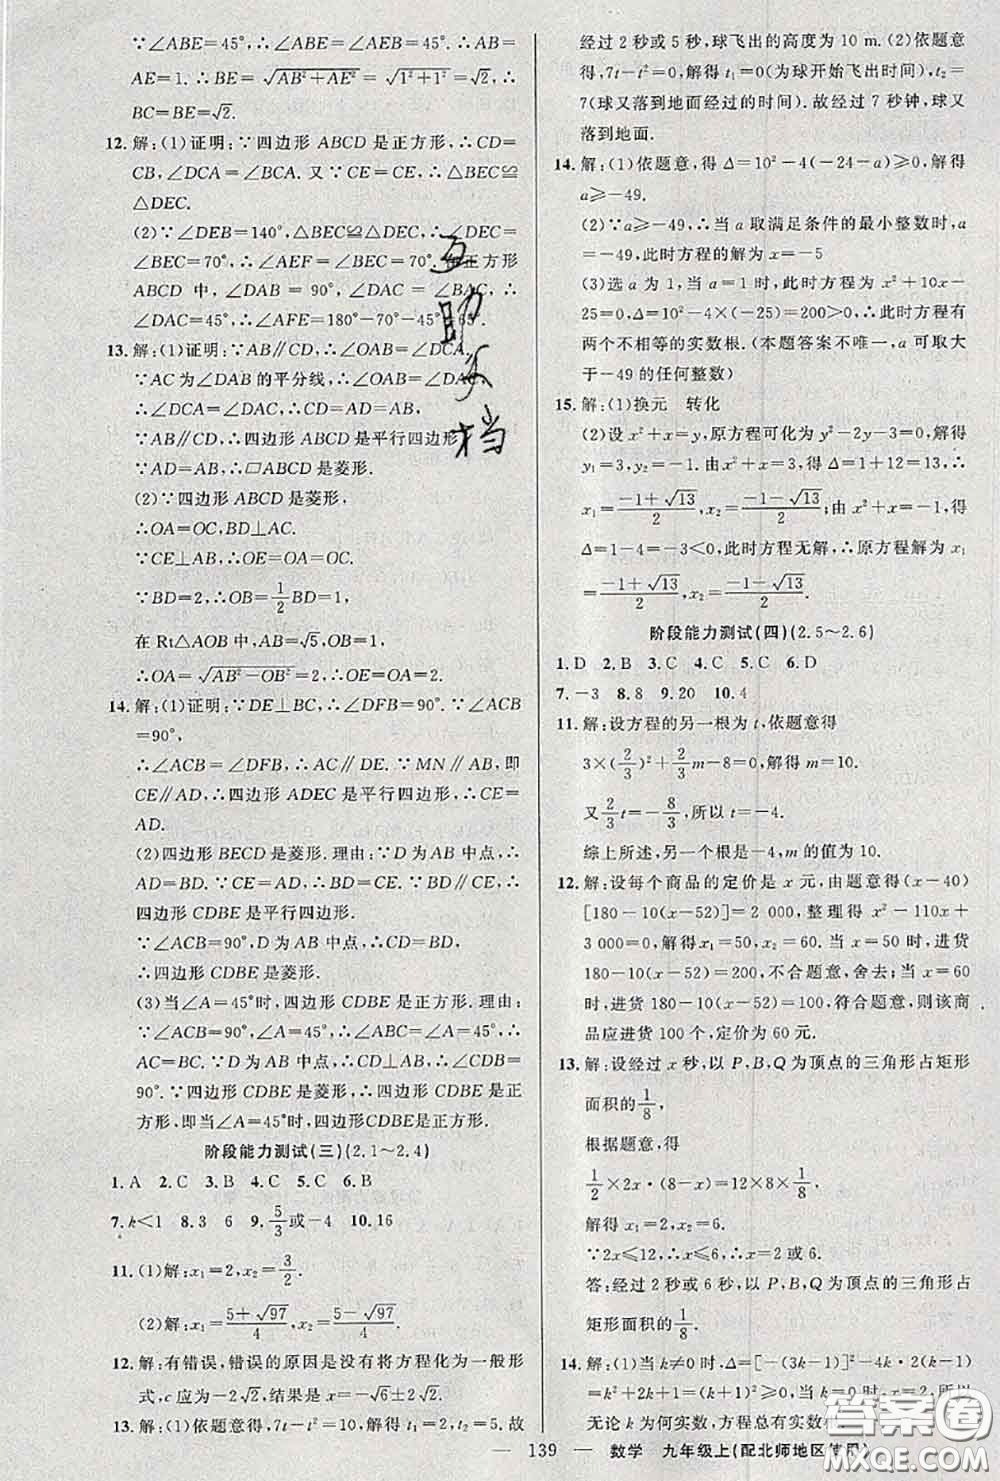 ∵∠ABE=45°,∴∠ABE=∠AEB=45°.∴AB=
AE=1.∴BE=√(AB²+AE²)=√(1²+1²)=√2,∴
BC=BE=√2.
12.解:(1)证明:∵四边形ABCD是正方形,∴CD=
CB,∠DCA=∠BCA.又∵CE=CE,∴△BEC≌
△DEC.
(2)∵∠DEB=140°,△BEC≌△DEC,∴∠DEC=
∠BEC=70°,∴∠AEF=∠BEC=70°.在正方形
ABCD中,∠DAB=90°,∠DAC=∠BAC,∴
∠DAC=45°,∴∠AFE=180°-70°-45°=65°.
13.解:(1)证明:∵AB∥CD,∴∠OAB=∠DCA.
∵AC为∠DAB的平分线,∴∠OAB=∠DAC,
∴∠DCA=∠DAC,∴CD=AD=AB,
∵AB∥CD,∴四边形ABCD是平行四边形,
∵AD=AB,∴□ABCD是菱形.
(2)∵四边形ABCD是菱形,
∴OA=OC,BD⊥AC.
∵CE⊥AB,∴OE=OA=OC.
∵BD=2,∴OB=1/2BD=1,
在Rt△AOB中,AB=√5,OB=1,
∴OA=√(AB²-OB²)=2,∴OE=OA=2.
14.解:(1)证明:∵DE⊥BC,∴∠DFB=90°.∵∠ACB
=90°,
∴∠ACB=∠DFB,∴AC∥DE.∵MN∥AB,即
CE∥AD,∴四边形ADEC是平行四边形,∴CE=
AD.
(2)四边形BECD是菱形.理由:∵D为AB中点,∴
AD=BD.∵CE=AD,∴BD=CE.∵BD∥CE,∴
四边形CDBE是平行四边形.
∵∠ACB=90°,D为AB中点,∴CD=BD,
∴四边形CDBE是菱形.
(3)当∠A=45°时,四边形CDBE是正方形.理由:
∵∠ACB=90°,∠A=45°,∴∠ABC=∠A=45°,∴
AC=BC.∵D为AB中点,∴CD⊥AB,∴∠CDB=
90°.∵四边形CDBE是菱形,∴四边形CDBE是正
方形,即当∠A=45°时,四边形CDBE是正方形.
阶段能力测试(三)(2.1~2.4)
1.A 2.C 3.B 4.C 5.C 6.B
7.k<1 8.3 6 9.5/3或-4 10.16
11.(1)解:x₁=2,x₂=3/2.
(2)解:x₁=(5+√97)/4,x₂=(5-√97)/4.
12.解:有错误,错误的原因是没有将方程化为一般形
式,c应为-2√2,结果是x=-√6±2√2.
13.解:(1)依题意得,7t-t²=10,解得t₁=2,t₂=5,故
经过2秒或5秒,球飞出的高度为10 m.(2)依题意
得,7t-t²=0,解得t₁=0(为球开始飞出时间),t₂=
7(球又落到地面经过的时间).故经过7秒钟,球又
落到地面.
14.解:(1)依题意,得Δ=10²-4(-24-a)≥0,解得
a≥-49.
(2)∵a≥-49,∴当a取满足条件的最小整数时,a=
-49,此时方程的解为x=-5
(3)选a为1,当a=1时,此时方程为x²+10x-25=
0,Δ=10²-4×(-25)=200>0,此时方程有
两个不相等的实数根.(本题答案不唯一,a可取大
于-49的任何整数)
15.解:(1)换元 转化
(2)设x²+x=y,原方程可化为y²-2y-3=0,解得
y₁=3,y₂=-1.由x²+x=3,得Δ=1+12=13,∴
x₁=(-1+√13)/2,x₂=(-1-√13)/2;由x²+x=-1,得
Δ=1-4=-3<0,此时方程无解,∴原方程解为x₁
=(-1+√13)/2,x₂=(-1-√13)/2.
阶段能力测试(四)(2.5~2.6)
1.D 2.B 3.C 4.C 5.C 6.D
7.-3 8.8 9.20 10.4
11.解:设方程的另一根为t,依题意得
3×(2/3)²+2/3m-8=0,解得m=10.
又2/3t=-8/3,所以t=-4.
综上所述,另一个根是-4,m的值为10.
12.解:设每个商品的定价是x元,由题意得(x-40)
[180-10(x-52)]=2 000,整理得x²-110x+
3 000=0,解得x₁=50,x₂=60.当x=50时,进货
180-10(x-52)=200,不合题意,舍去;当x=60
时,进货180-10(x-52)=100,符合题意,则该商
品应进货100个,定价为60元.
13.解:设经过x秒,以P,B,Q为顶点的三角形占矩形
面积的1/8,
根据题意,得
1/2×2x·(8-x)=12×8×1/8,
解得x₁=2,x₂=6.
∵2x≤12,∴x≤6,∴x=2或6.
答:经过2秒或6秒,以P,B,Q为顶点的三角形占
矩形面积的1/8.
14.解:(1)当k≠0时,Δ=[-(3k-1)]²-4k·2(k-1)
无论k为何实数,方程总有实数
互助文档
答案圈
— 139 — 数学 九年级上(配北师地区使用)